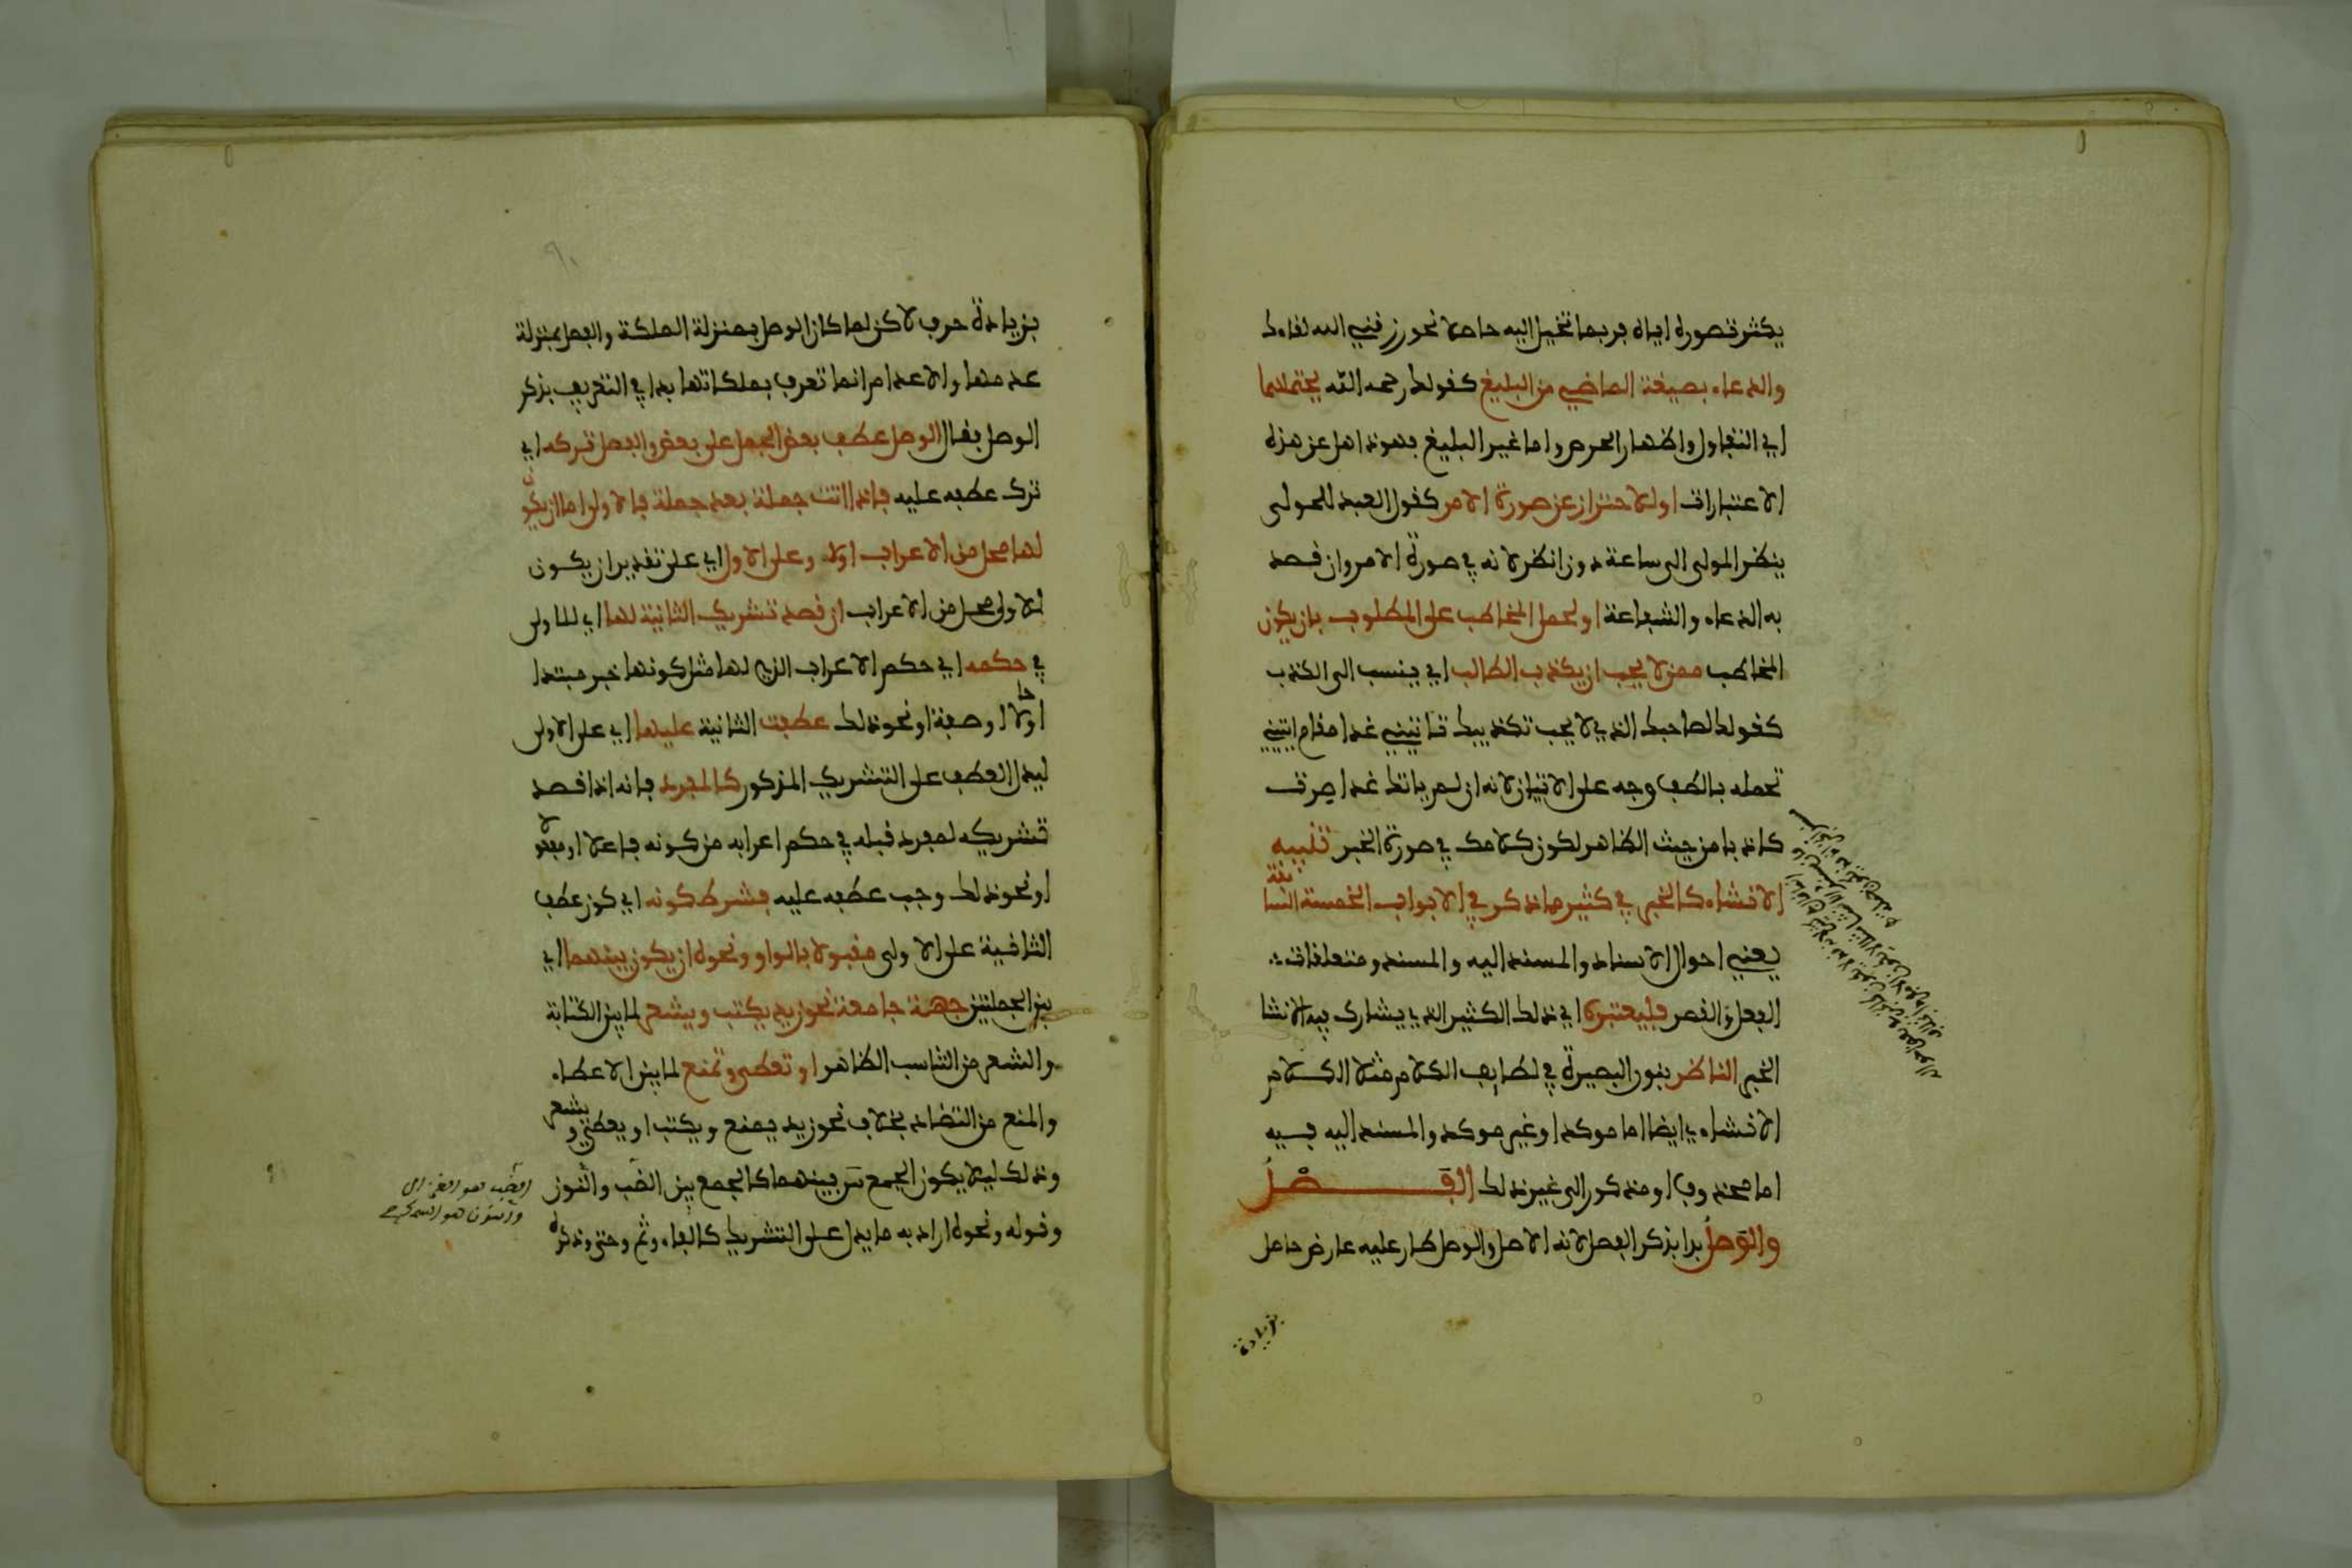 يكثر تصوره اياه فربما تخيل اليه حاصلا نحو رزقني الله لقاءك
والدعاء بصيغة الماضي من البليغ كقولك رحمه الله يحتملهما
اي التفاول واظهار الحرص واما غير البليغ فهو ذاهل عن هذه
الاعتبارات او للاحتراز عن صورة الامر كقول العبد للمولى
ينظر المولى الى ساعة دون انظر لانه في صورة الامر وان قصد
به الدعاء والشفاعة او لحمل المخاطب على المطلوب بان يكون
المخاطب ممن لا يحب ان يكذب الطالب اي ينسب الى الكذب
كقولك لصاحبك الذي لا يحب تكذيبك تاتيني غدا مقام ايتيني
تحمله بالطف وجه على الاتيان لانه ان لم ياتك غدا صرت
كاذبا من حيث الظاهر لكون كلامك في صورة الخبر تنبيه
الانشاء كالخبر في كثير مما ذكر في الابواب الخمسة السابقة
يعني احوال الاسناد والمسند اليه والمسند ومتعلقات
الفعل والقصر فليعتبره اي ذلك الكثير الذي يشارك فيه الانشا
الخبر الناظر بنور البصيرة في لطايف الكلام مثلا الكلام
الانشاءي ايضا اما موكد او غير موكد والمسند اليه فيه
اما محذوف او مذكور الى غير ذلك الفصل
والوصل بدا بذكر الفصل لانه الاصل والوصل طار عليه عارض حاصل
بزيادة
بزيادة حرف لاكن لما كان الوصل بمنزلة الملكة والفصل بمنزلة
عدمها والاعدام انما تعرف بملكاتها بدا في التعريف بذكر
الوصل فقال الوصل عطف بعض الجمل على بعض والفصل تركه اي
ترك عطفه عليه فاذا اتت جملة بعد جملة فالاولى اما ان يكون
لها محل من الاعراب اولا وعلى الاول اي على تقدير ان يكون
للاولى محل من الاعراب ان قصد تشريك الثانية لها اي للاولى
في حكمه اي حكم الاعراب الذي لها مثل كونها خبر مبتدا
او حالا او صفة او نحو ذلك عطفت الثانية عليها اي على الاولى
ليدل العطف على التشريك المذكور كالمفرد فانه اذا قصد
تشريكه لمفرد قبله في حكم اعرابه من كونه فاعلا او مفعولا
او نحو ذلك وجب عطفه عليه فشرط كونه اي كون عطف
الثانية على الاولى مقبولا بالواو ونحوه ان يكون بينهما اي
بين الجملتين جهة جامعة نحو زيد يكتب ويشعر لما بين الكتابة
والشعر من التناسب الظاهر او تعطى وتمنع لما بين الاعطاء
والمنع من التضاد بخلاف نحو زيد يمنع ويكتب او يعطي ويشعر
وذلك ليلا يكون الجمع بينهما كالجمع بين الضب والنون
وقوله ونحوه اراد به ما يدل على التشريك كالفاء وثم وحتى وذكره